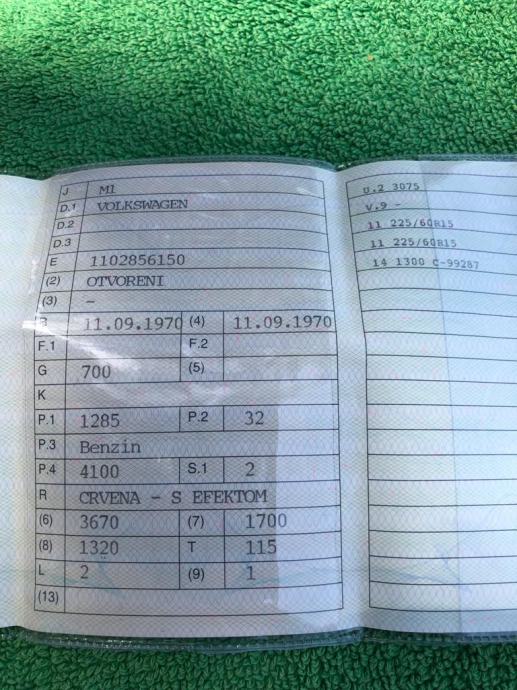 J M1
D.1 VOLKSWAGEN
D.2
D.3
E 1102856150
(2) OTVORENI
(3) -
B 11.09.1970 (4) 11.09.1970
F.1 F.2
G 700 (5)
K
P.1 1285 P.2 32
P.3 Benzin
P.4 4100 S.1 2
R CRVENA - S EFEKTOM
(6) 3670 (7) 1700
(8) 1320 T 115
L 2 (9) 1
(13)
U.2 3075
V.9 -
11 225/60R15
11 225/60R15
14 1300 C-99287